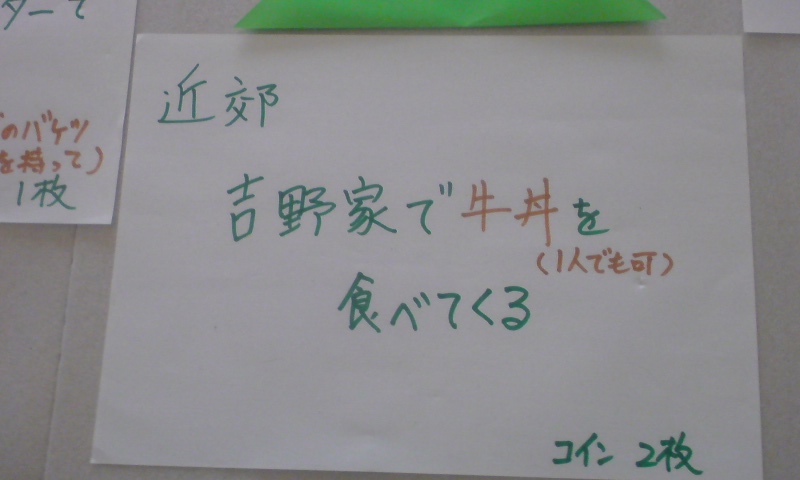 ターで
のバケツ
を持って)
1枚
近郊
吉野家で牛丼を
(1人でも可)
食べてくる
コイン 2枚